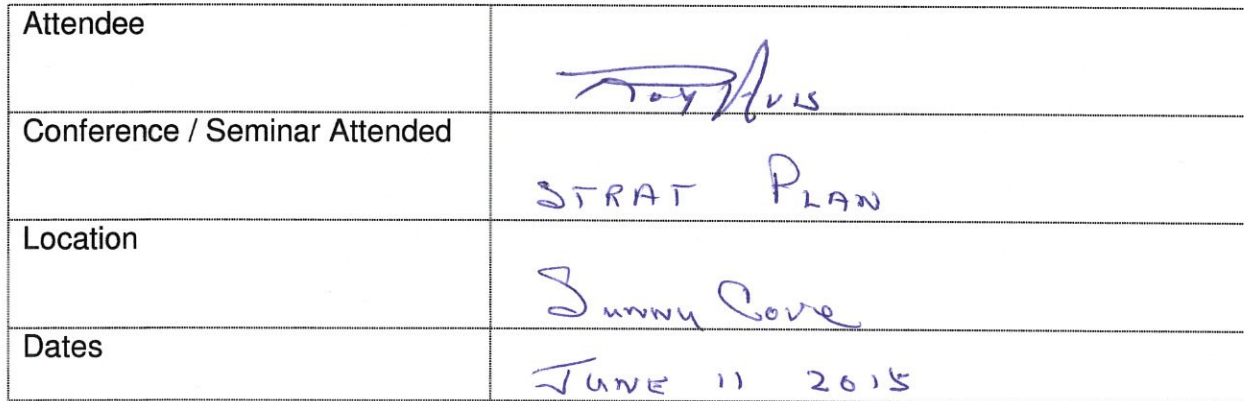 Attendee
Conference / Seminar Attended
STRAT PLAN
Location
Sunny Cove
Dates
JUNE 11 2015